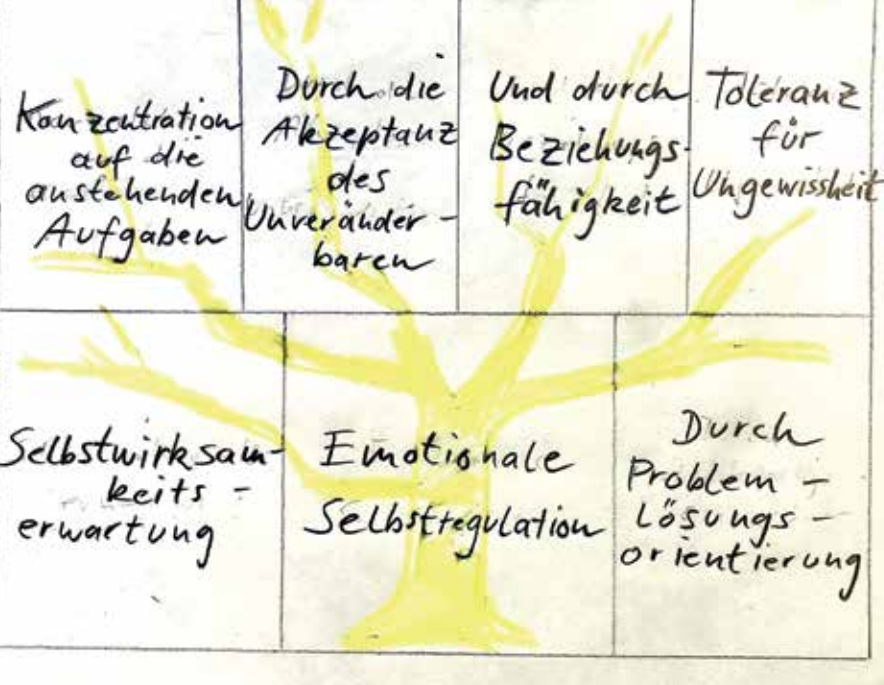 Konzentration
auf die
anstehenden
Aufgaben
Durch die
Akzeptanz
des
Unveränder-
baren
Und durch
Beziehungs-
fähigkeit
Toleranz
für
Ungewissheit
Selbstwirksam-
keits-
erwartung
Emotionale
Selbstregulation
Durch
Problem-
lösungs-
orientierung